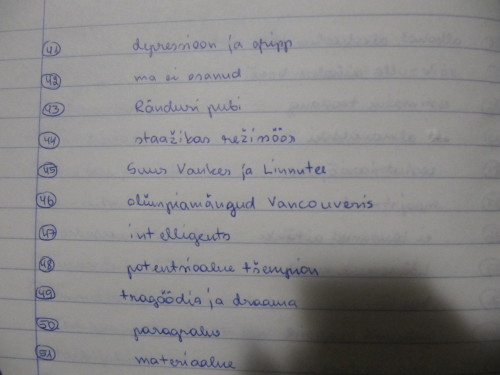 41 depressioon ja gripp
42 ma ei osanud
43 Rändur pubi
44 staažikas režissöör
45 Suur Vanker ja Linnutee
46 olümpiamängud Vancouveris
47 intelligents
48 potentsiaalne tšempion
49 tragöödia ja draama
50 paragrahv
51 materiaalne